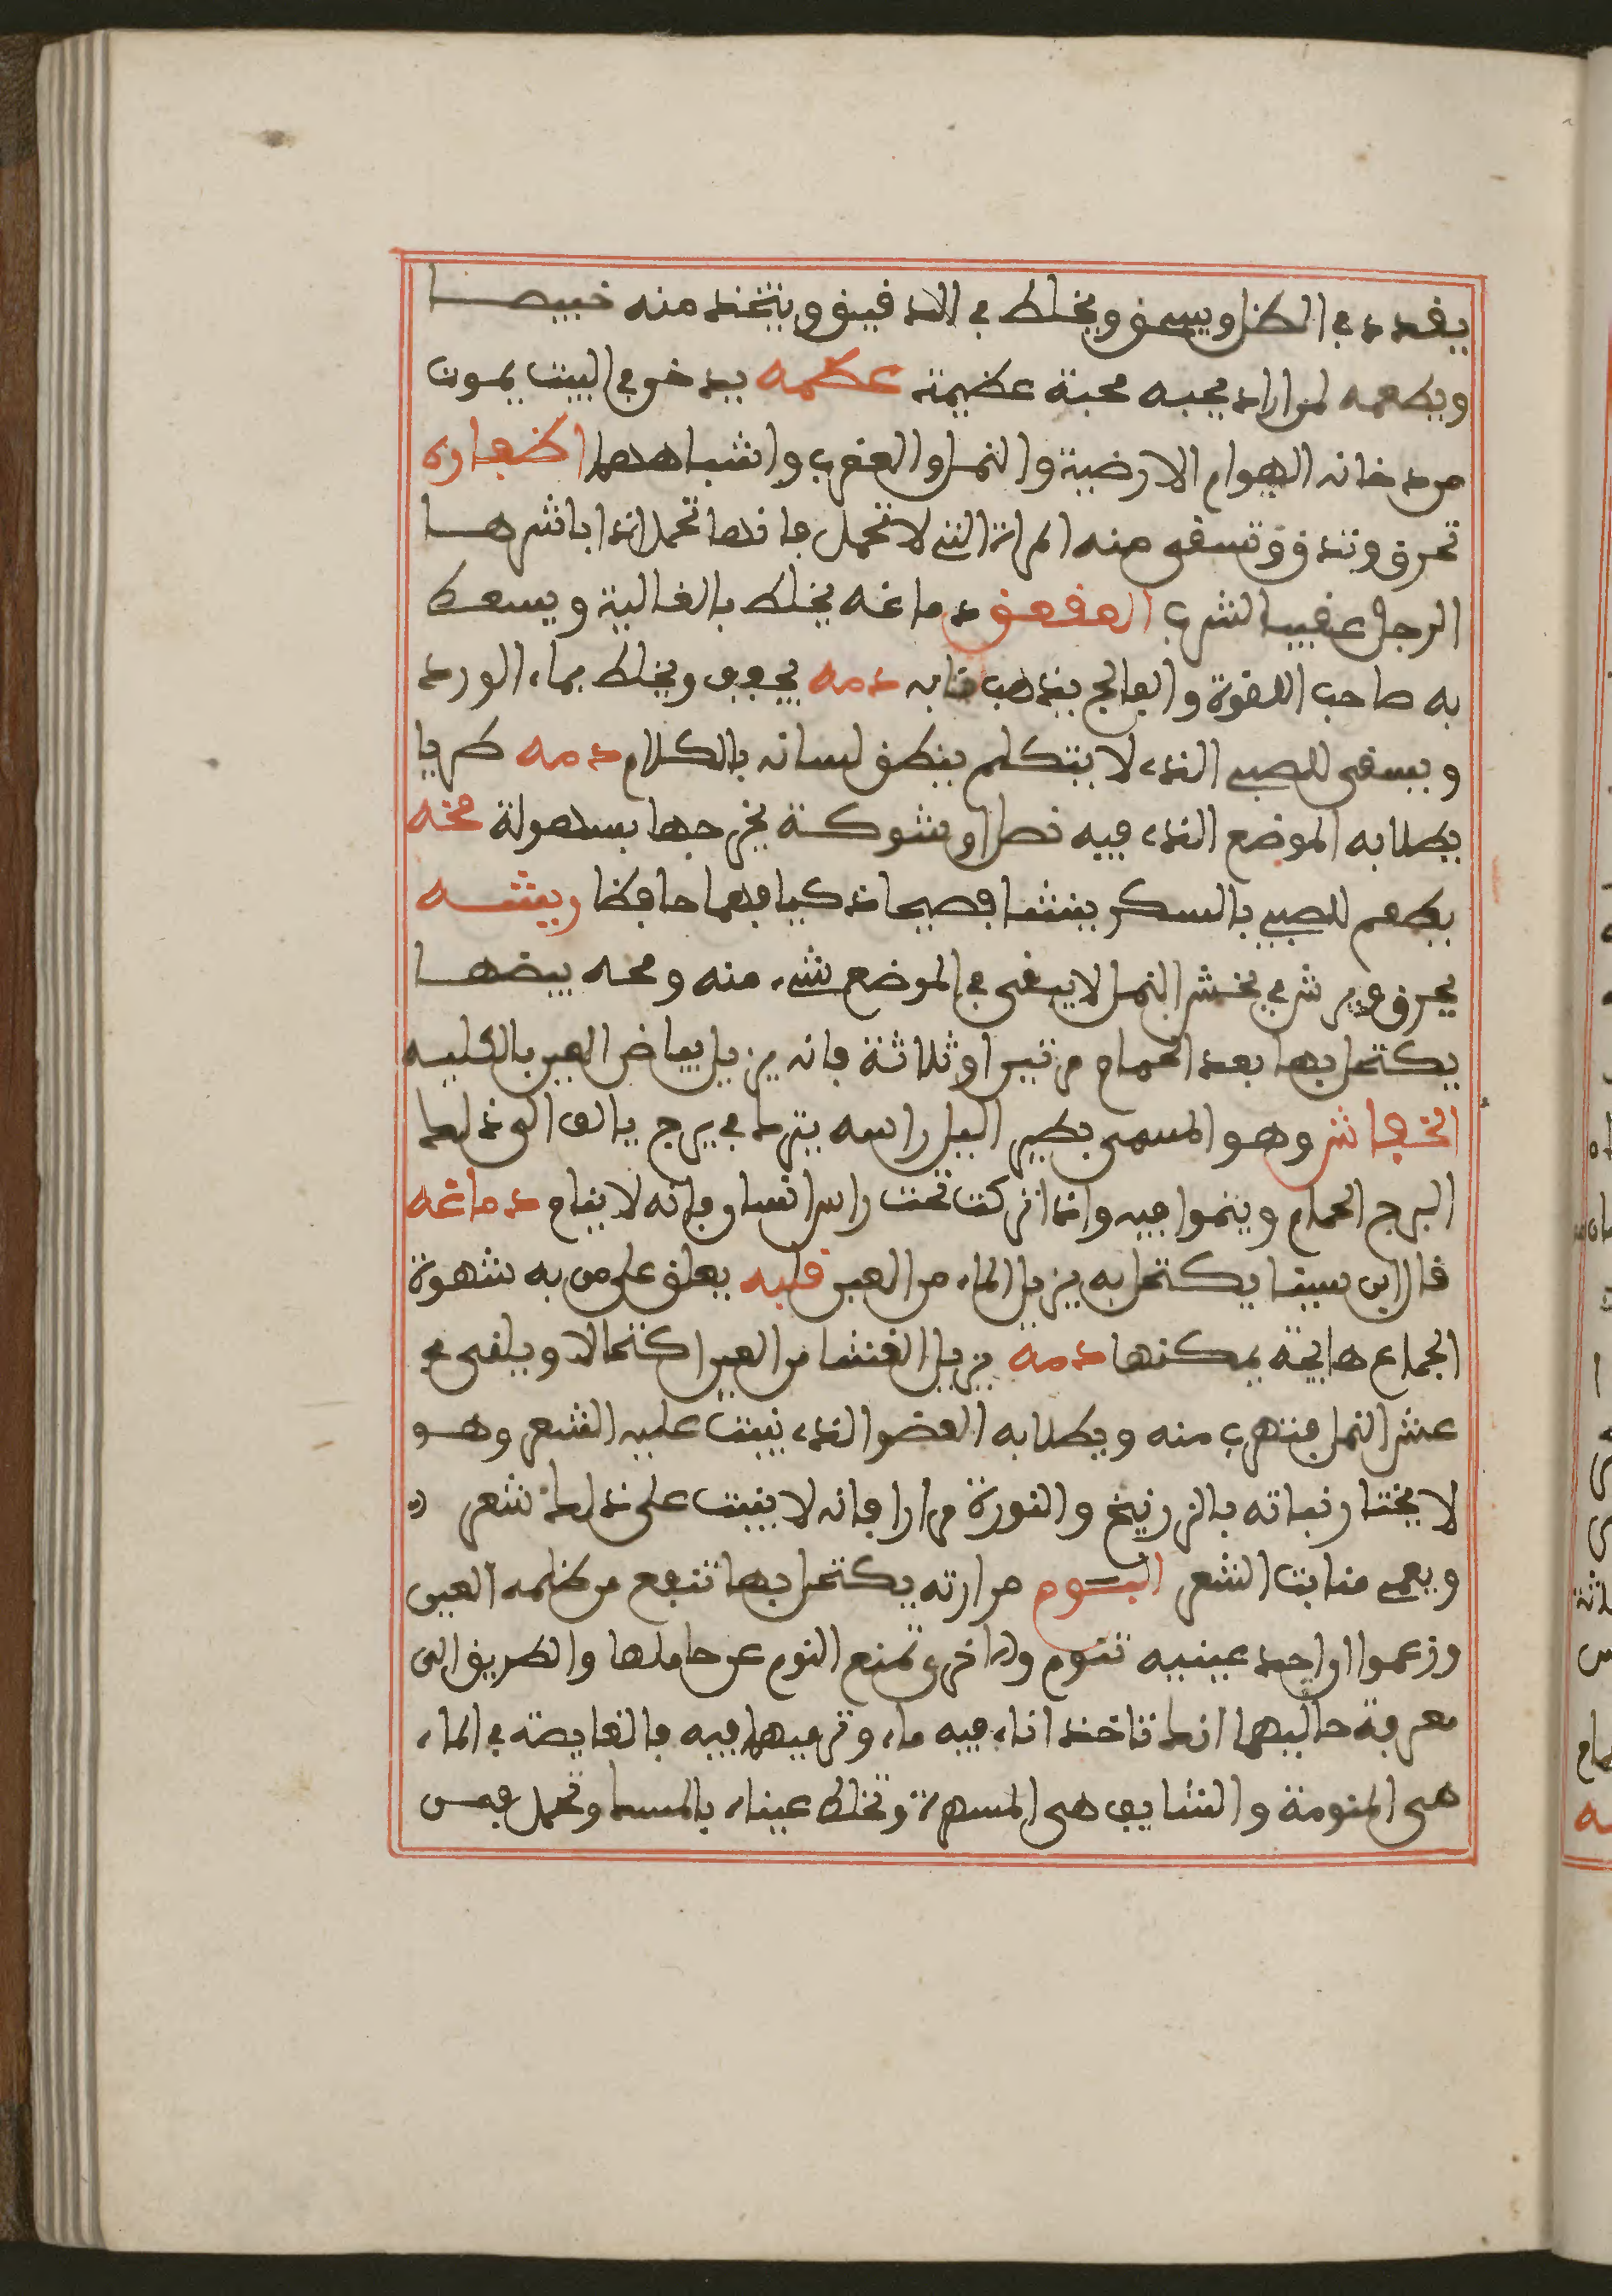 يقدد في الظل ويسحق ويخلط في الدقيق ويتخذ منه خبيصا
ويطعمه لمن اراد يحبه محبة عظيمة عظمه يدخن في البيت يموت
من دخانه الهوام الارضية والنمل والعقرب واشباههما اظفاره
تحرق وتدق وتسقى منه المراة التي لا تحمل فانها تحمل اذا باشرها
الرجل عقيب الشرب العقعق دماغه يخلط بالغالية ويسعط
به صاحب اللقوة والفالج يذهب مابه دمه يجفف ويخلط بماء الورد
ويسقى للصبي الذي لا يتكلم ينطق لسانه بالكلام دمه طريا
يطلا به الموضع الذي فيه نصل او شوكة يخرجها بسهولة مخه
يطعم للصبي بالسكر ينشا فصيحا ذكيا فهما حافظا ريشه
يحرق ويرش في بخش النمل لا يبقى في الموضع شيء منه ومحه بيضها
يكتحل بها بعد الحمام مرتين او ثلاثة فانه يزيل بياض العين بالكليه
الخفاش وهو المسمى بطير اليل راسه يترك في برج يالف الى ذلك
البرج الحمام وينموا فيه واذا تركت تحت راس انسان فانه لا ينام دماغه
قال ابن سينا يكتحل به يزيل الماء من العين قلبه يعلق على من به شهوة
الجماع هايجة يسكنها دمه يزيل الغشا من العين اكتحالا ويلقى في
عش النمل فتهرب منه ويطلا به العضو الذي نبت عليه الشعر وهو
لا يختار نباته بالزرنيخ والنورة مرارا فانه لا ينبت على ذلك شعر
ويعمي منابت الشعر البوم مرارته يكتحل بها تنفع من ظلمه العين
وزعموا ان احد عينيه تنوم والاخرى تمنع النوم عن حاملها والطريق الى
معرفة حاليهما انك تاخذ اناء فيه ماء وترميهما فيه فالغايصة في الماء
هي المنومة والشايف هي المسهرة وتخلط عيناه بالمسك وتحمل فمن